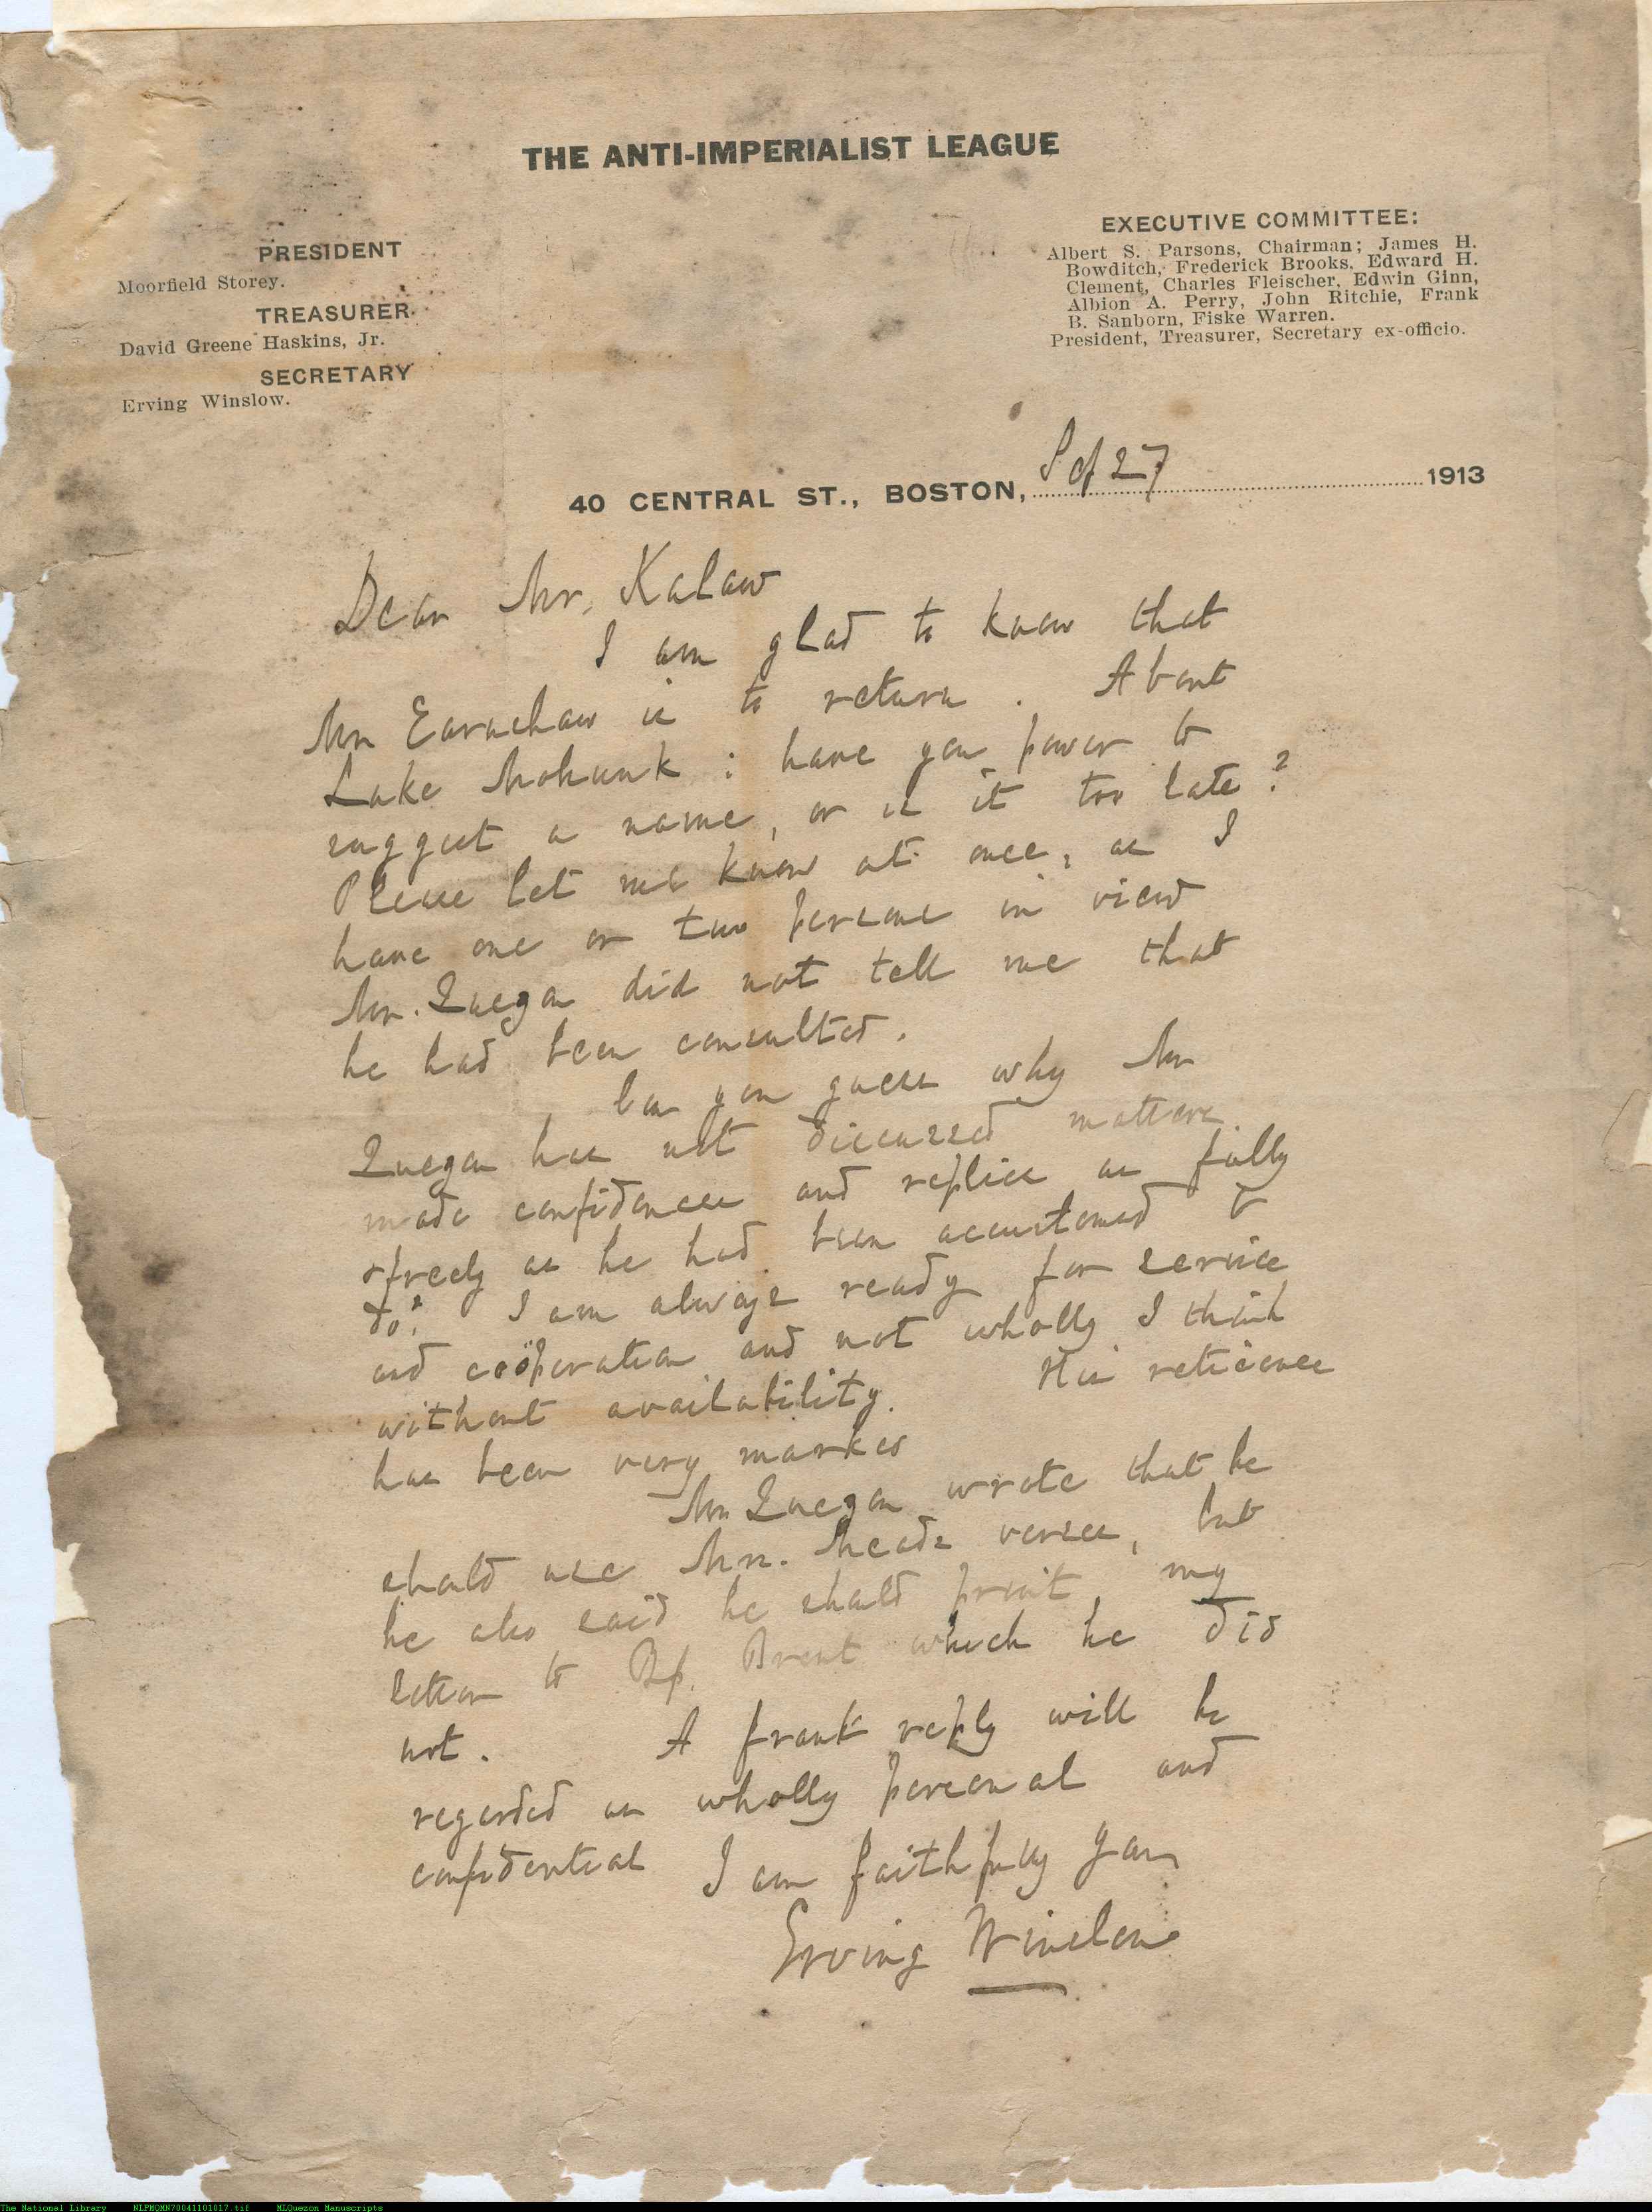 THE ANTI-IMPERIALIST LEAGUE
PRESIDENT
Moorfield Storey.
TREASURER
David Greene Haskins, Jr.
SECRETARY
Erving Winslow.
EXECUTIVE COMMITTEE:
Albert S. Parsons, Chairman; James H.
Bowditch, Frederick Brooks, Edward H.
Clement, Charles Fleischer, Edwin Ginn,
Albion A. Perry, John Ritchie, Frank
B. Sanborn, Fiske Warren.
President, Treasurer, Secretary ex-officio.
40 CENTRAL ST., BOSTON, 27 1913
Dear Mr. Kalaw
I am glad to know that
Mr Earnshaw is to return. About
Lake Mohunk: have you power to
suggest a name, or is it too late?
Please let me know at once, as I
have one or two persons in view
Mr. Quezon did not tell me that
he had been consulted.
Can you guess why Mr
Quezon has not discussed matters
made confidences and replies as fully
& freely as he had been accustomed to
do? I am always ready for service
and coöperation and not wholly I think
without availability. His reticence
has been very marked
Mr Quezon wrote that he
should use Mrs. Meads verses, but
he also said he should print my
letter to Bp. Brent which he did
not. A frank reply will be
regarded as wholly personal and
confidential I am faithfully yours
Erving Winslow
The National Library NLPMQMN70041101017.tif MLQuezon Manuscripts